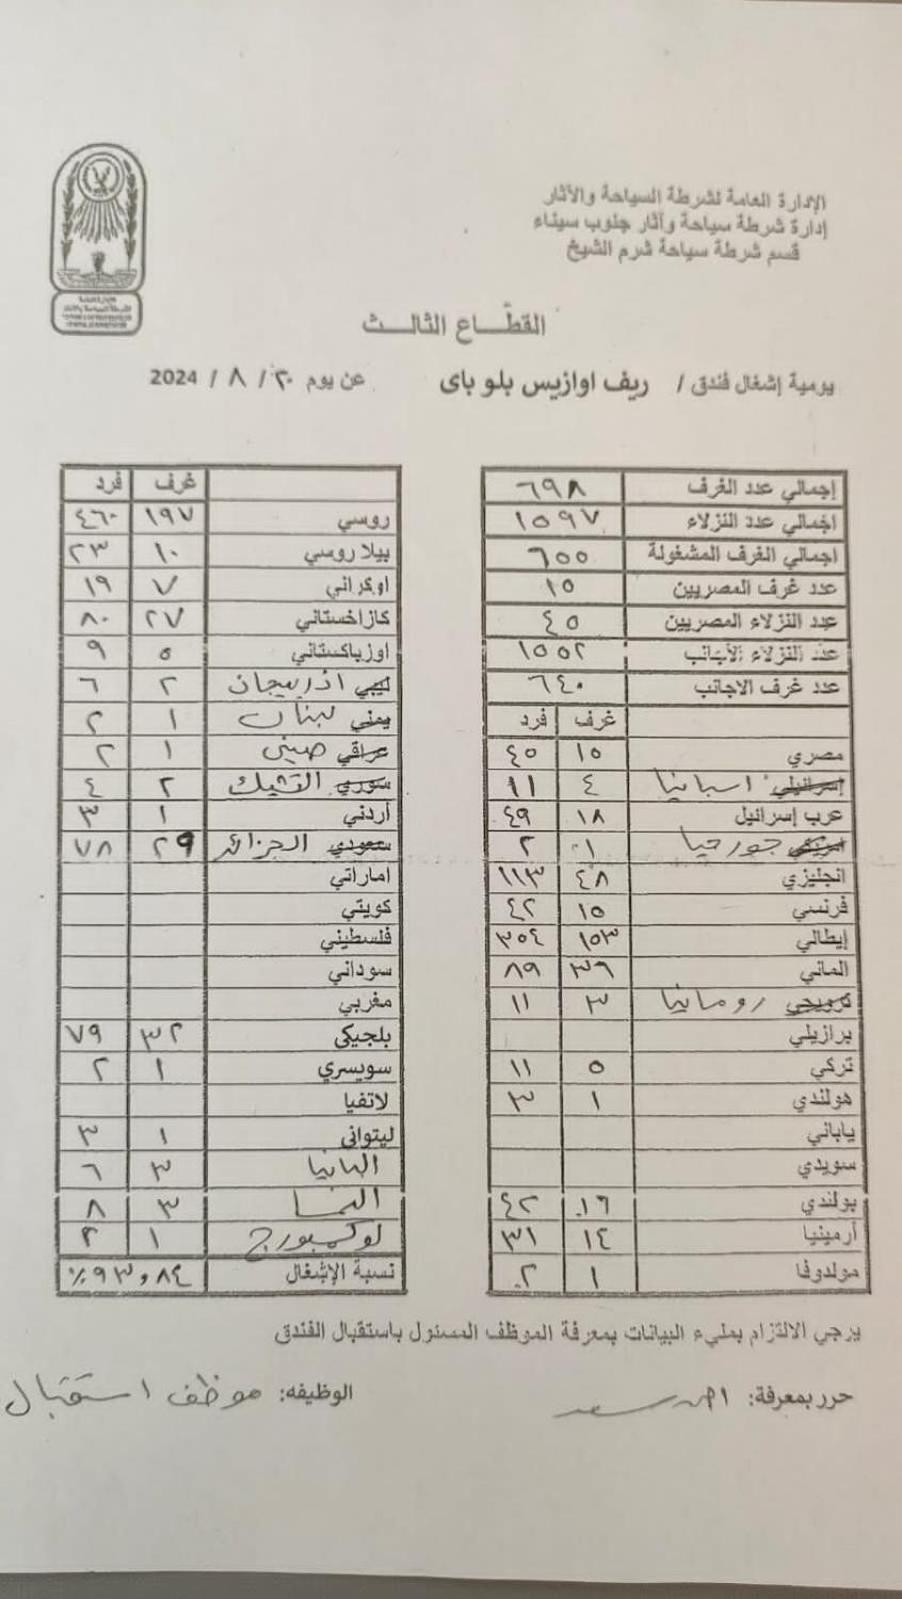 الإدارة العامة لشرطة السياحة والآثار
إدارة شرطة سياحة وآثار جنوب سيناء
قسم شرطة سياحة شرم الشيخ
القطّاع الثالث
يومية إشغال فندق / ريف اوازيس بلو باى عن يوم ٢٠ / ٨ / 2024
إجمالي عدد الغرف ٦٩٨
اجمالي عدد النزلاء ١٥٩٧
اجمالي الغرف المشغولة ٦٥٥
عدد غرف المصريين ١٥
عدد النزلاء المصريين ٤٥
عدد النزلاء الأجانب ١٥٥٢
عدد غرف الاجانب ٦٤٠
غرف فرد
مصري ١٥ ٤٥
إسرائيلي اسبانيا ٤ ١١
عرب إسرائيل ١٨ ٤٩
جورجيا ١ ٢
انجليزي ٤٨ ١١٣
فرنسي ١٥ ٤٢
إيطالي ١٥٣ ٣٥٤
الماني ٣٦ ٨٩
نرويجي رومانيا ٣ ١١
برازيلي
تركي ٥ ١١
هولندي ١ ٣
ياباني
سويدي
بولندي ١٦ ٤٢
أرمينيا ١٤ ٣١
مولدوفا ١ ٢
غرف فرد
روسي ١٩٧ ٤٦٠
بيلاروسي ١٠ ٢٣
اوكراني ٧ ١٩
كازاخستاني ٢٧ ٨٠
اوزباكستاني ٥ ٩
ليبي اذربيجان ٢ ٦
يمني لبنان ١ ٢
عراقي صيني ١ ٢
سوري التشيك ٢ ٤
أردني ١ ٣
سعودي الجزائر ٢٩ ٧٨
اماراتي
كويتي
فلسطيني
سوداني
مغربي
بلجيكى ٣٢ ٧٩
سويسري ١ ٢
لاتفيا
ليتوانى ١ ٣
البانيا ٣ ٦
النمسا ٣ ٨
لوكمبورج ١ ٢
نسبة الإشغال ٩٣,٨٤ ٪
يرجي الالتزام بمليء البيانات بمعرفة الموظف المسئول باستقبال الفندق
حرر بمعرفة: احمد سعد الوظيفه: موظف استقبال